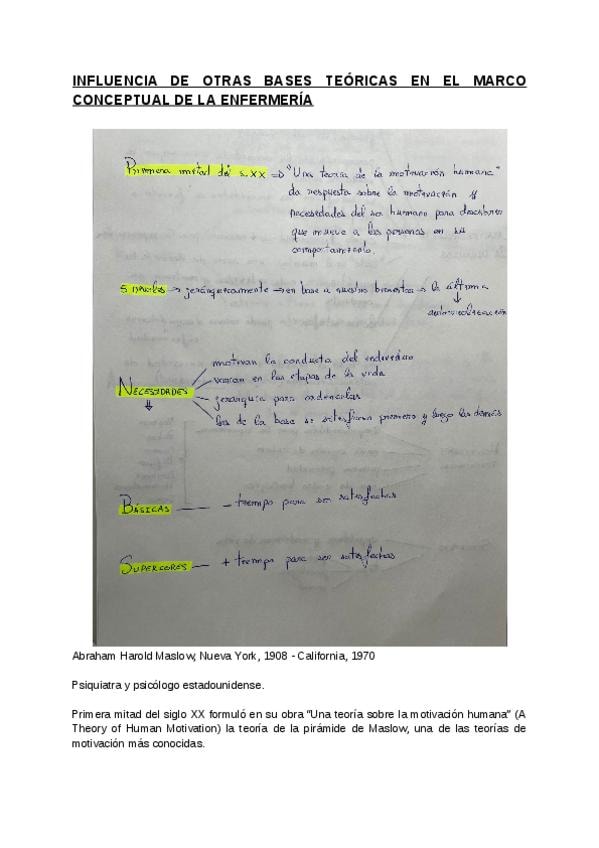 INFLUENCIA DE OTRAS BASES TEÓRICAS EN EL MARCO
CONCEPTUAL DE LA ENFERMERÍA
Primera mitad del s.XX => "Una teoría de la motivación humana"
da respuesta sobre la motivación y
necesidades del ser humano para descubrir
que mueve a las personas en su
comportamiento.
5 niveles → jerárquicamente → en base a nuestro bienestar → la última
↓
autorrealización
motivan la conducta del individuo
varían en las etapas de la vida
NECESIDADES
jerarquía para ordenarlas
las de la base se satisfacen primero y luego las demás
BÁSICAS — - tiempo para ser satisfechas
SUPERIORES — + tiempo para ser satisfechas
Abraham Harold Maslow, Nueva York, 1908 - California, 1970
Psiquiatra y psicólogo estadounidense.
Primera mitad del siglo XX formuló en su obra "Una teoría sobre la motivación humana" (A
Theory of Human Motivation) la teoría de la pirámide de Maslow, una de las teorías de
motivación más conocidas.